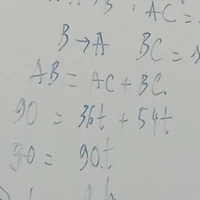 AC =
B → A BC =
AB = AC + BC
90 = 36t + 54t
90 = 90t